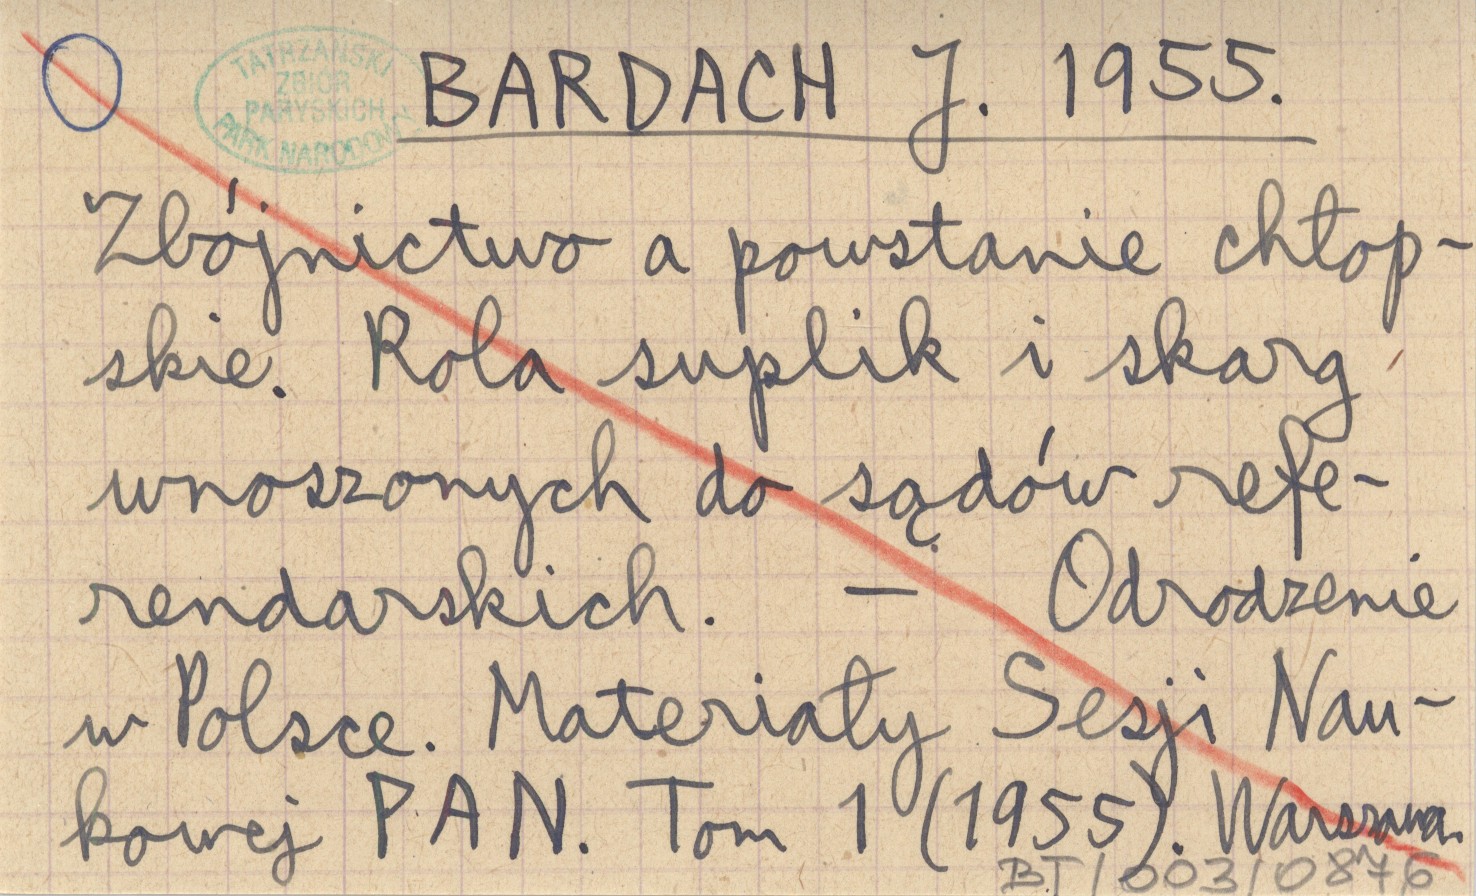 TATRZAŃSKI
ZBIÓR
PARYSKICH
PARK NARODOWY
BARDACH J. 1955.
Zbójnictwo a powstanie chłop-
skie. Rola suplik i skarg
wnoszonych do sądów refe-
rendarskich. — Odrodzenie
w Polsce. Materiały Sesji Nau-
kowej PAN. Tom 1 (1955). Warszawa.
BT/003/0876